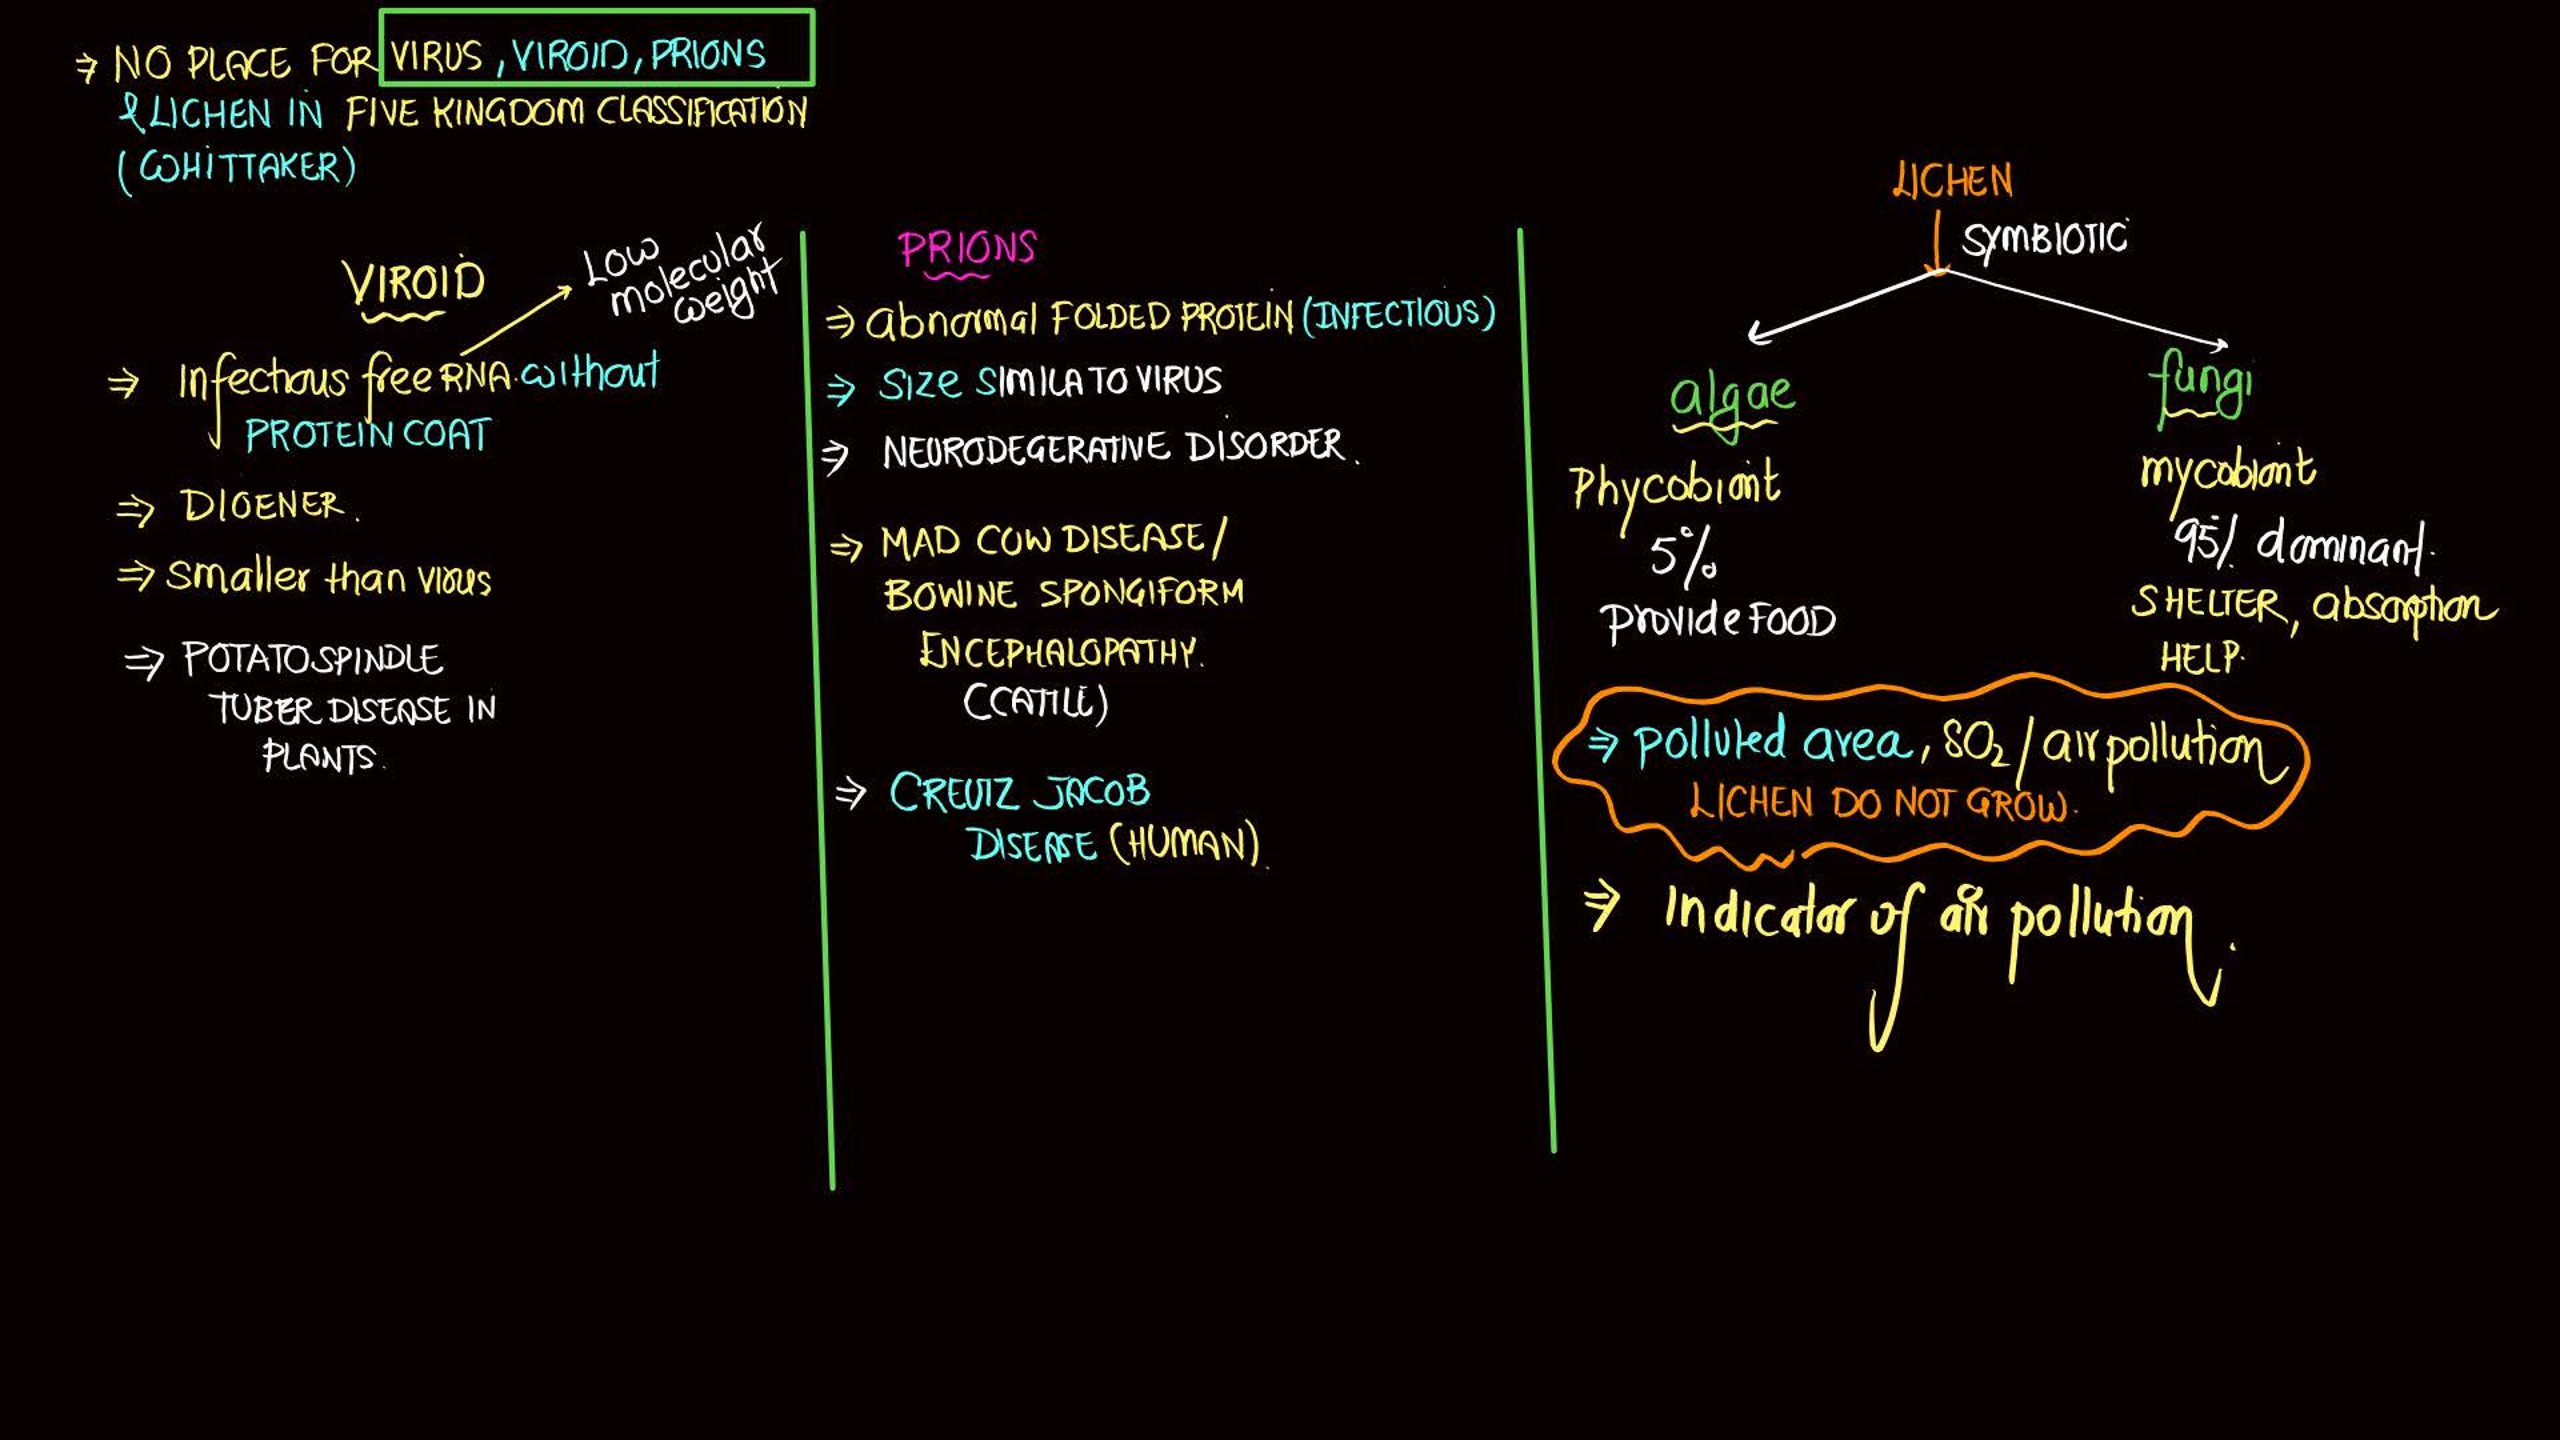 ⇒ NO PLACE FOR VIRUS, VIROID, PRIONS
& LICHEN IN FIVE KINGDOM CLASSIFICATION
(WHITTAKER)
VIROID
Low
molecular
weight
⇒ Infectious free RNA without
PROTEIN COAT
⇒ DIOENER.
⇒ Smaller than virus
⇒ POTATO SPINDLE
TUBER DISEASE IN
PLANTS.
PRIONS
⇒ abnormal FOLDED PROTEIN (INFECTIOUS)
⇒ SIZE SIMILA TO VIRUS
⇒ NEURODEGERATIVE DISORDER.
⇒ MAD COW DISEASE /
BOWINE SPONGIFORM
ENCEPHALOPATHY.
(CATTLE)
⇒ CREUTZ JACOB
DISEASE (HUMAN).
LICHEN
SYMBIOTIC
algae
Phycobiont
5%
Provide FOOD
fungi
mycobiont
95% dominant.
SHELTER, absorption
HELP.
⇒ polluted area, SO2 / air pollution
LICHEN DO NOT GROW.
⇒ Indicator of air pollution.